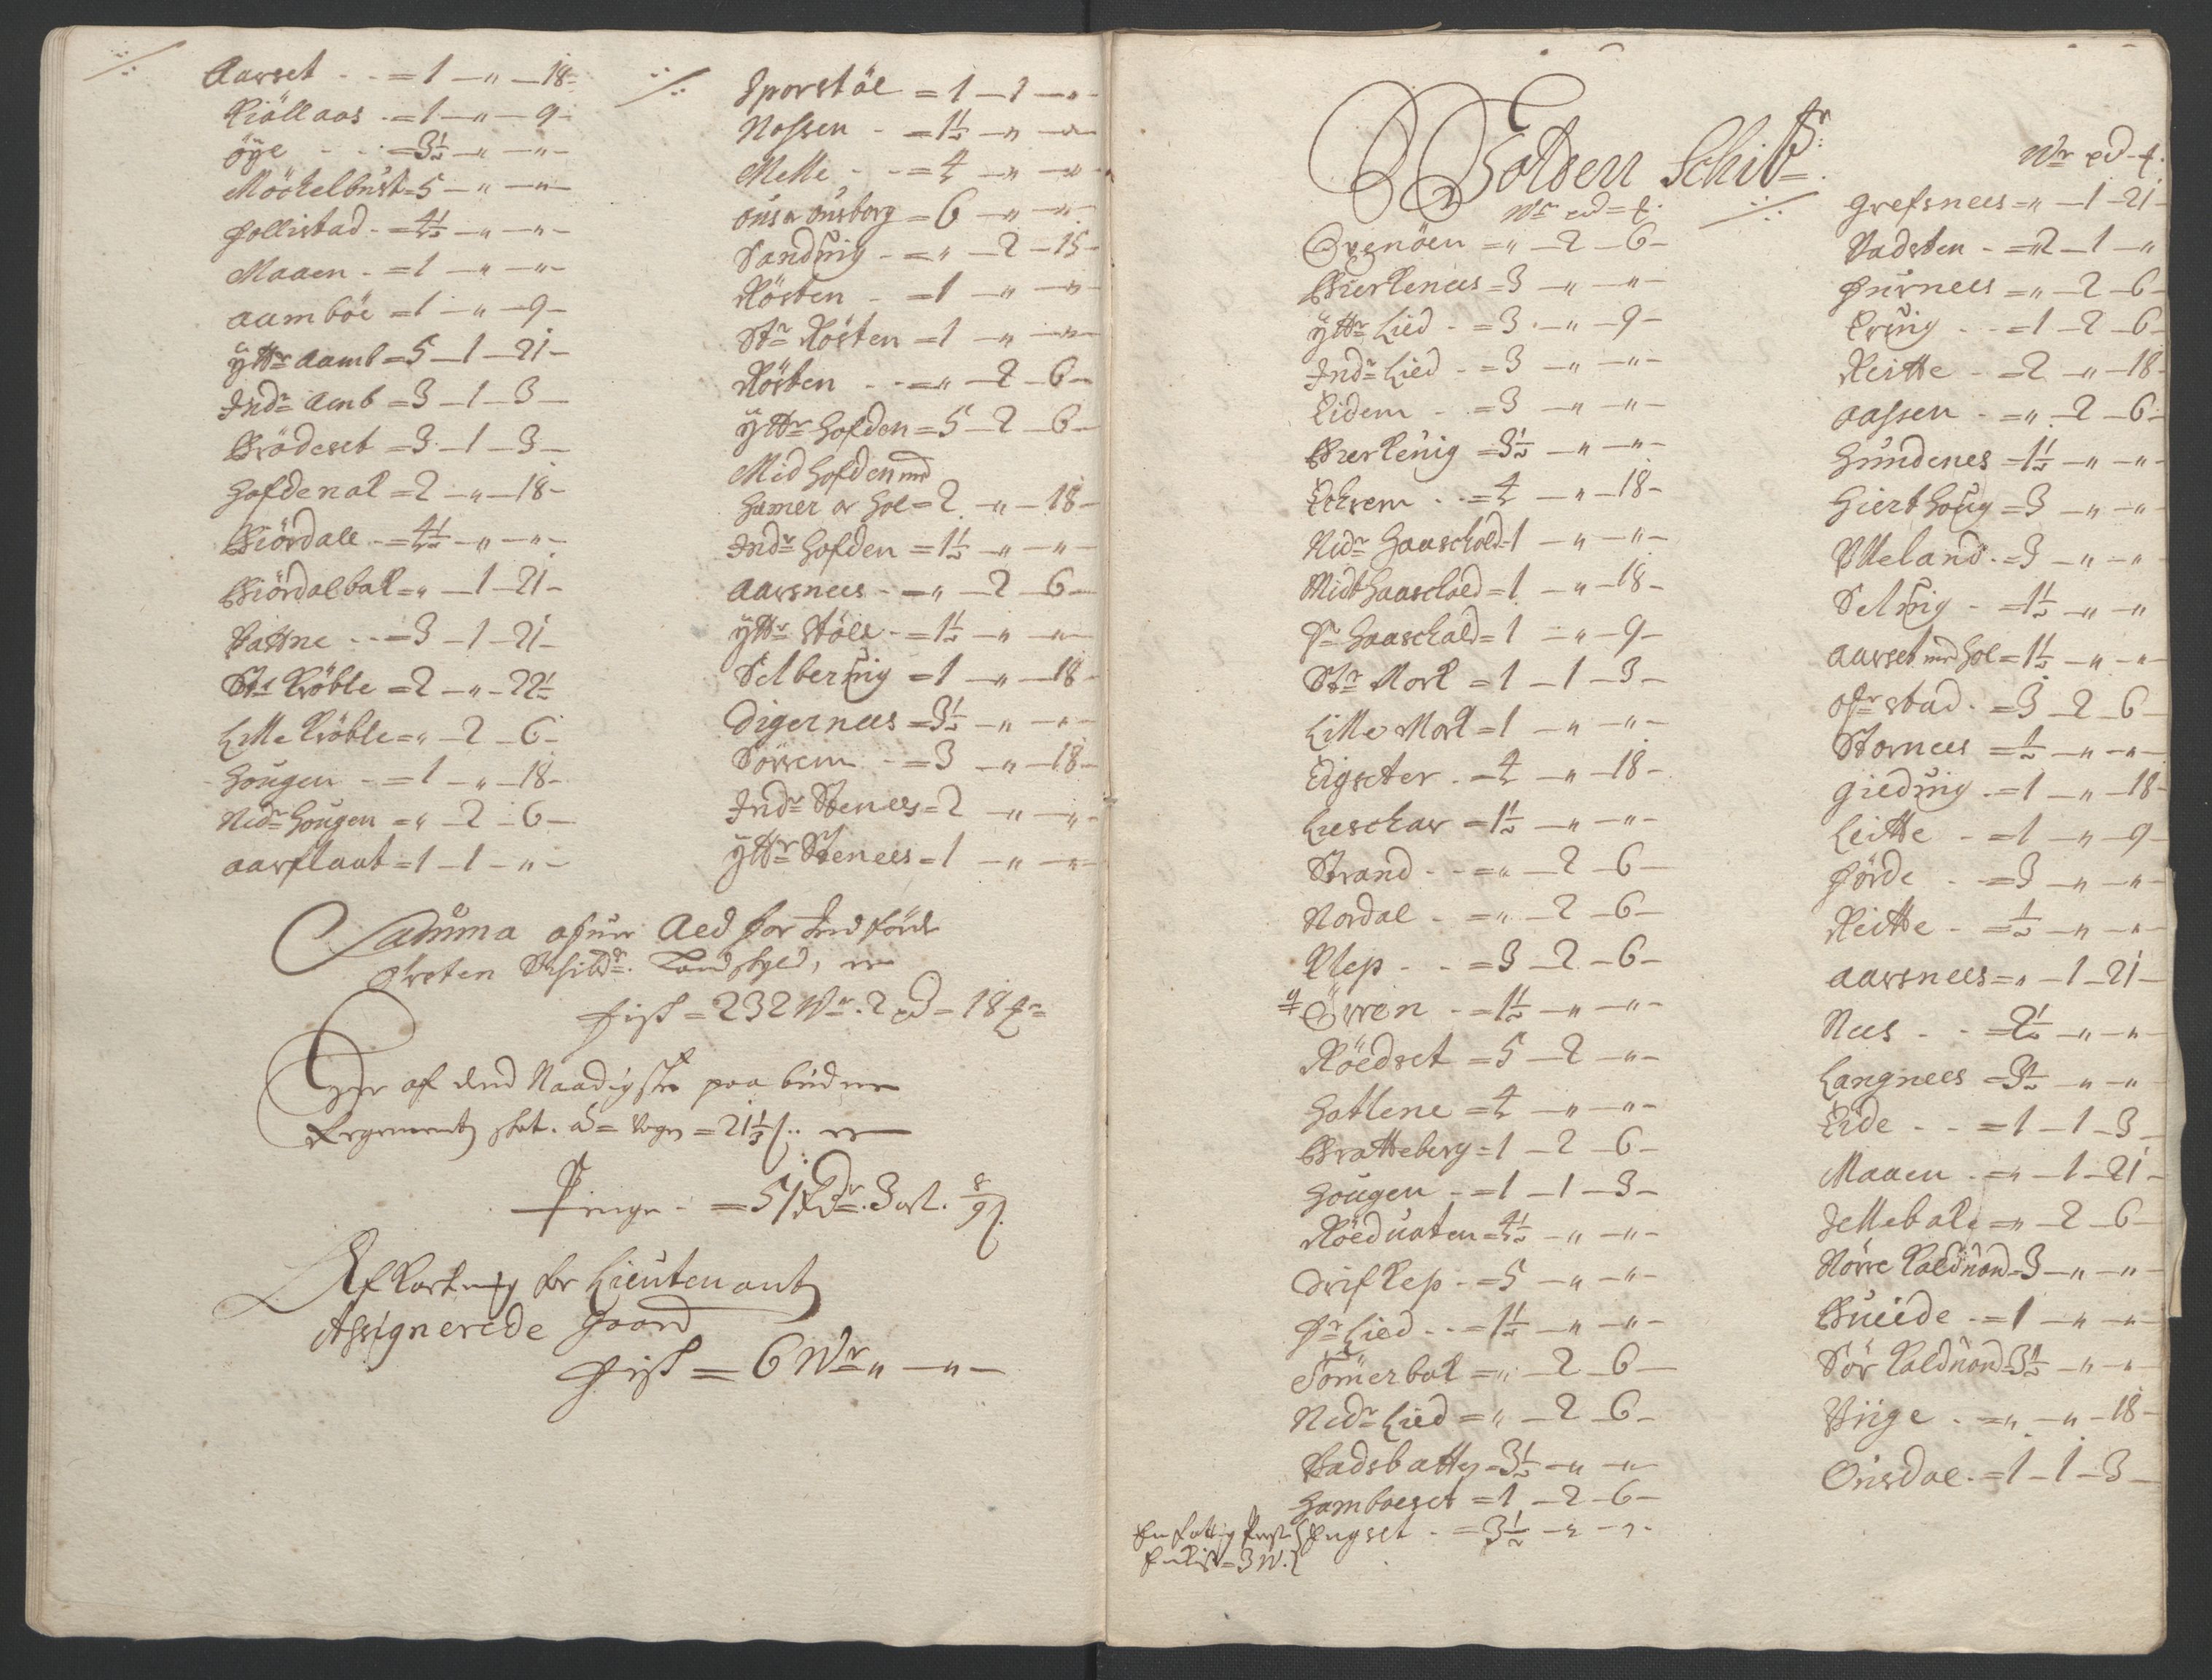 Aarset - - = 1 — „ — 18 -
Kiöllaas - = 1 — „ — 9 -
öÿe - - - = 3½ — „ — „ -
Möckelbust = 5 — „ — „ -
Follistad - = 4½ — „ — „ -
Maaen - = 1 — „ — „ -
aamböe = 1 — „ — 9 -
ÿttr aamb = 5 — 1 — 21 -
Indr amb = 3 — 1 — 3 —
Brödeset = 3 — 1 — 3 —
Hofdenak = 2 — „ — 18 -
Biördall - = 4½ — „ — „ -
Biördalbak = „ — 1 — 21 -
Vattne - - = 3 — 1 — 21 -
Str Kröble = 2 — „ — 22½
Lille Kröble = „ — 2 — 6 -
Hougen - = 1 — „ — 18 -
Nedr Hougen = „ — 2 — 6 —
aarflaat = 1 — 1 — „ -
Sporstöl = 1 — 1 — „ -
Nossen - = 1½ — „ — „ -
Melle - - = 4 — „ — „ -
ous or ousborg = 6 — „ — „ -
Sanduig - = „ — 2 — 15 -
Rösten - = 1 — „ — „ -
Str Rösten = 1 — „ — „ -
Rösten - - = „ — 2 — 6 -
ÿttr Hofden = 5 — 2 — 6 -
Mid Hofden md
Hamer or Hol = 2 — „ — 18 -
Indr Hofden = 1½ — „ — „ -
Aarsnees - = „ — 2 — 6 -
ÿttr Stöll - = 1½ — „ — „ -
Selberuig = 1 — „ — 18 -
Digernees = 3½ — „ — „ -
Sörrem - = 3 — „ — 18 -
Indr Stenees = 2 — „ — „ -
ÿttr Stenees = 1 — „ — „ -
Summa ofuer Aed for Indförde
Landskyld,
Fisk = 232 Wr. 2 pd - 18
Der af dend Naadigste paa buden
skat. = 21⅓ s
Penge - = 51 Rdr. 3 ort. 8/9 s
Afkortning for Lieutenants
Assignerede Gaard
Fisk = 6 Wr „ — „ —
Volden Schibr.
Wr pd
Suenöen = „ — 2 — 6 -
Bierkenees = 3 — „ — „ -
ÿttr Lied - = 3 — „ — 9 -
Indr Lied - = 3 — „ — „ -
Eidem - = 3 — „ — „ -
Bierkeuig = 3½ — „ — „ -
Echrem - - = 4 — „ — 18 -
Nedr Haaschold = 1 — „ — „ -
Midt Haaschold = 1 — „ — 18 -
Haaschold = 1 — „ — 9 -
Str Mork = 1 — 1 — 3 -
Lille Mork = 1 — „ — „ -
Eigseter - = 4 — „ — 18 -
Lieschar = 1½ — „ — „ -
Strand - - = „ — 2 — 6 —
Nordal - = „ — 2 — 6 —
Klep - - = 3 — 2 — 6 —
Örren - = 1½ — „ — „ -
Röedset = 5 — 2 — „ -
Hotlene = 4 — „ — „ -
Bratteberg = 1 — 2 — 6 -
Hougen - = 1 — 1 — 3 -
Röeduaten = 4½ — „ — „ -
Drifkep - = 5 — „ — „ -
Lied - - = 1½ — „ — „ -
Tömerbak = „ — 2 — 6 —
Nedr Lied = „ — 2 — 6 -
Vadsbatten = 3½ — „ — „ -
Hamboeset = 1 — 2 — 6 -
En fattig
= 3 W.
Engset - = 3½ — „ — „ -
Wr pd
Grefsnees = „ — 1 — 21 -
Vadsten - = 2 — 1 — „
Furnees = „ — 2 — 6 -
Eruig - - = 1 — 2 — 6 -
Reitte - = 2 — „ — 18 -
Aassen - = „ — 2 — 6 -
Hundenes = 1½ — „ — „ -
Hierthoug = 3 — „ — „ -
Velland - = 3 — „ — „ -
Seluig - = 1½ — „ — „
aarset md Hol = 1½ — „ — „ -
ofrstad - = 3 — 2 — 6 -
Stornees = ½ — „ — „ -
Gieduig - = 1 — „ — 18 -
Leitte - = 1 — „ — 9 -
Förde - = 3 — „ — „ -
Reitte - = ½ — „ — „ -
Aarsnees = „ — 1 — 21 -
Nees - - = 2½ — „ — „
Langnees = 3½ — „ — „
Eide - - = 1 — 1 — 3 -
Maaen - = „ — 1 — 21 -
Jellebake = „ — 2 — 6 -
Nörre Kalduond = 3 — „ — „ -
Bueide - = 1 — „ — „ -
Sör Kalduond = 3½ — „ — „
Viige - = „ — „ — 18 -
Ousdal - = 1 — 1 — 3 -